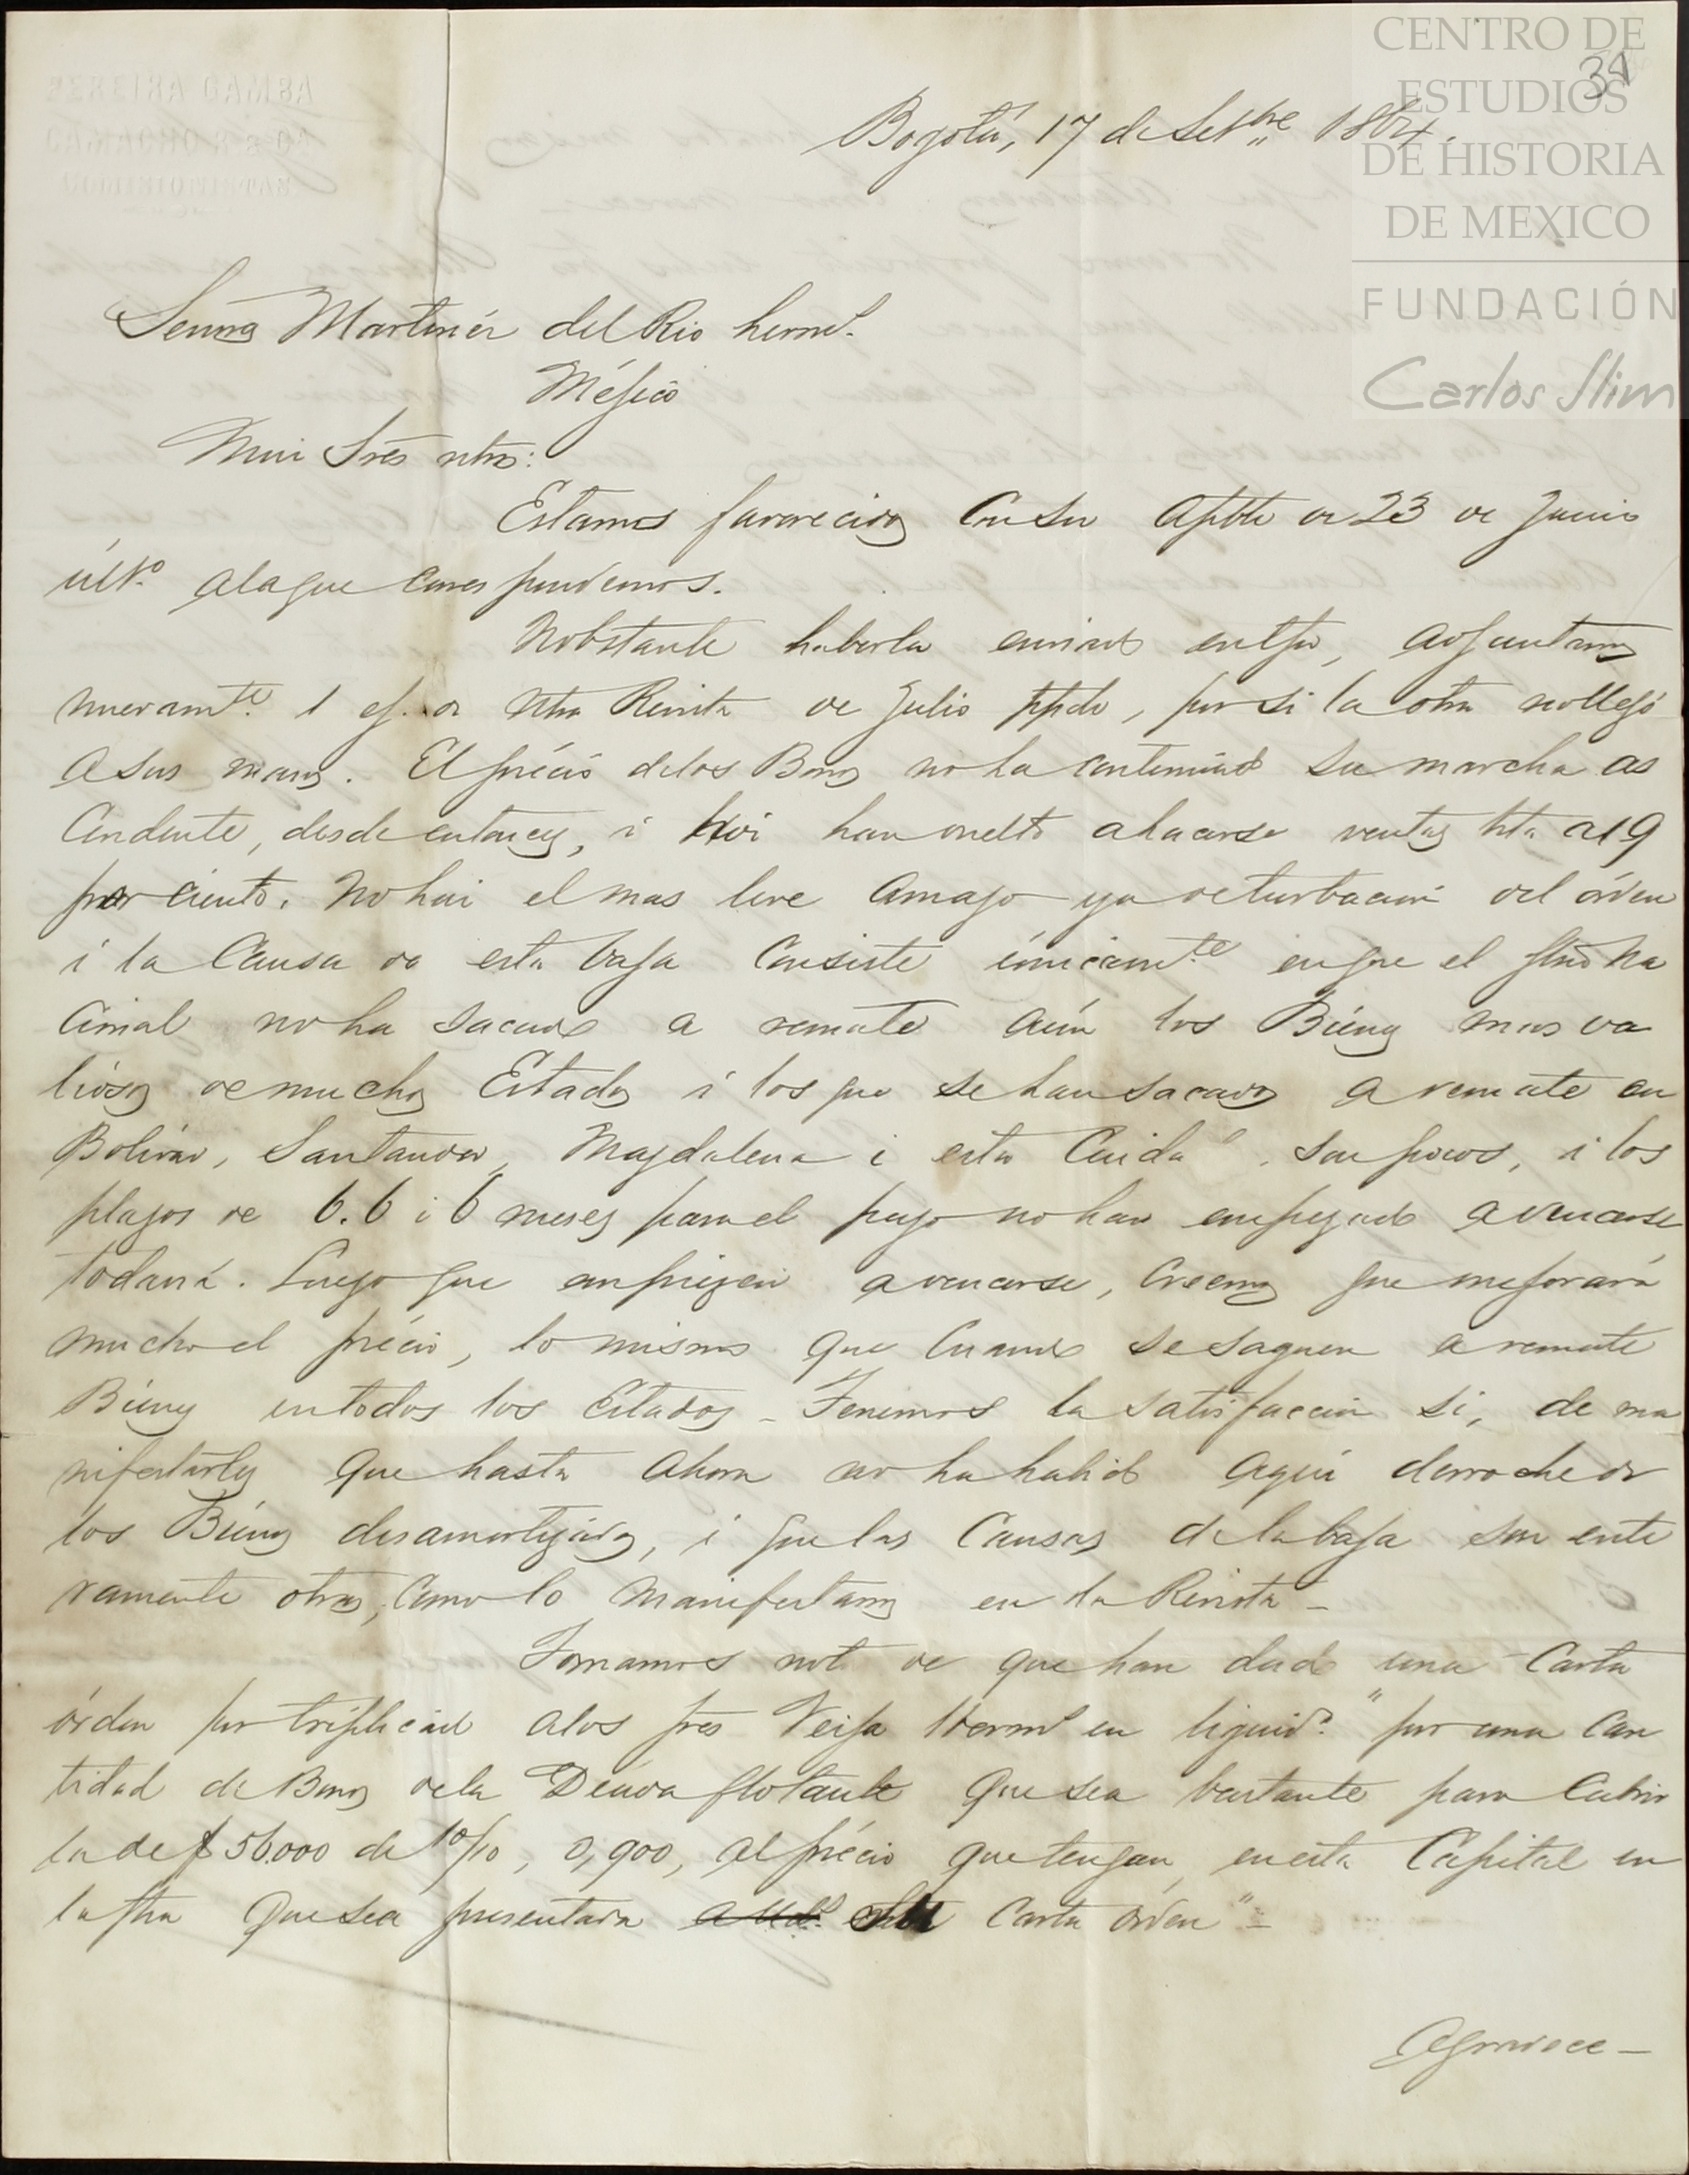 CENTRO DE
ESTUDIOS
DE HISTORIA
DE MEXICO
FUNDACIÓN
Carlos Slim
39
PEREIRA GAMBA
CAMACHO R & CA
COMISIONISTAS
Bogotá, 17 de Setbre 1864.
Señores Martínez del Rio hermos.
Méjico
Mui Sres ntros:
Estamos favorecidos con su aptble de 23 de Junio
últo. a la que correspondemos.
Nobstante haberla enviado , adjuntamos
nuevamte. 1 ej. de ntra Revista de Julio ppdo, por si la otra no llegó
a sus manos. El précio de los Bonos no ha continuado su marcha as
cendente, desde entonces, i hoi han vuelto a hacerse ventas hta al 9
por ciento. No hai el mas leve amago ya de turbacion del órden
i la causa de esta baja consiste únicamte en que el Gno Na
cional no ha sacado a remate aún los Bienes mas va
liosos de muchos Estados i los que se han sacado a remate en
Bolívar, Santander, Magdalena i esta Ciudad, son pocos, i los
plazos de 6. 6 i 6 meses para el pago no han empezado a vencerse
todavía. Luego que empiezen a vencerse, creemos que mejorará
mucho el précio, lo mismo que cuando se saquen a remate
Bienes en todos los Estados – Tenemos la satisfaccion si, de ma
nifestarles que hasta ahora no ha habido aquí derroche de
los Bienes desamortizados, i que las causas de la baja son ente
ramente otras, como lo manifestamos en la Revista –
Tomamos nota de que han dado una Carta
órden por triplicado a los Sres Veija Hermos en liquidn. "por una can
tidad de Bonos de la Deuda flotante que sea bastante para cubrir
la de $ 56.000 de 10/10, 0,900, al précio que tengan en esta Capital en
la fha que sea presentada a Uds. esta Carta órden" –
Agradece –